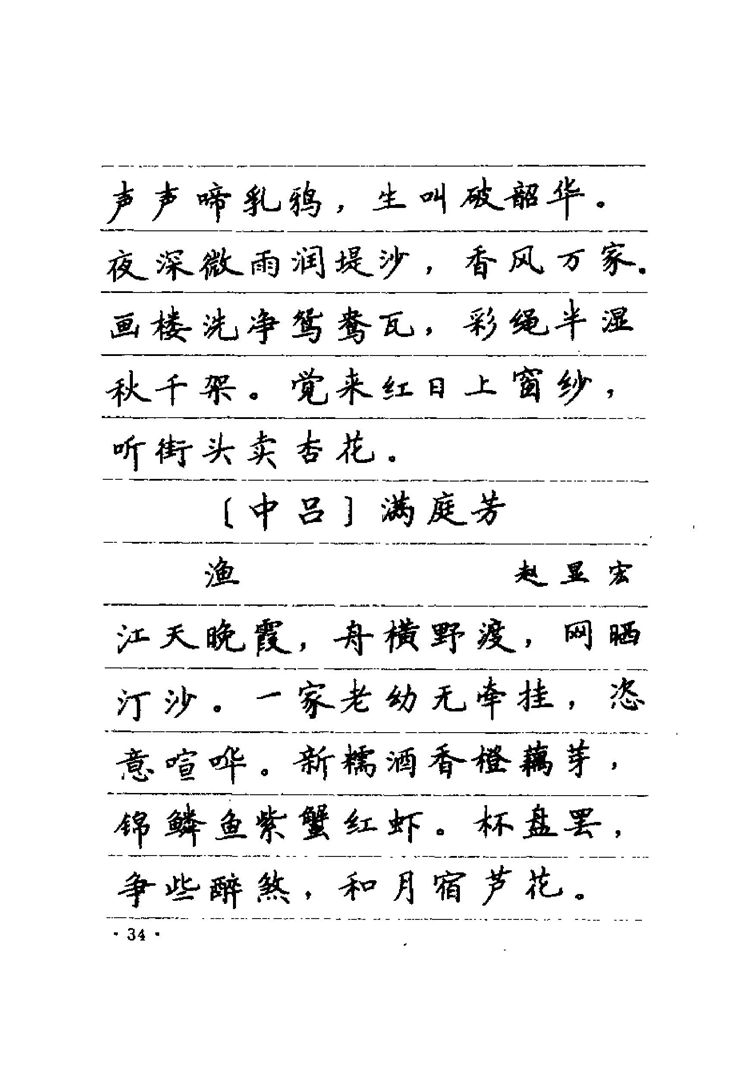 声声啼乳鸦，生叫破韶华。
夜深微雨润堤沙，香风万家。
画楼洗净鸳鸯瓦，彩绳半湿
秋千架。觉来红日上窗纱，
听街头卖杏花。
〔中吕〕满庭芳
渔 赵显宏
江天晚霞，舟横野渡，网晒
汀沙。一家老幼无牵挂，恣
意喧哗。新糯酒香橙藕芽，
锦鳞鱼紫蟹红虾。杯盘罢，
争些醉煞，和月宿芦花。
·34·